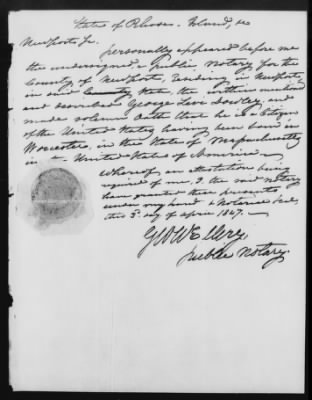 State of Rhode Island, ss
Newport, Sc.
personally appeared before me
the undersigned a public Notary for the
County of Newport, residing in Newport,
in said County State, the within mentioned
and described George Levi Dowley, and
made solemn Oath that he is a Citizen
of the United States having been born in
Worcester, in the State of Massachusetts
in the United States of America
Whereof an attestation being
required of me, I the said notary
have granted these presents
under my hand & Notarial Seal
this 3d day of april 1847.
Geo W Ellery.
Public Notary.